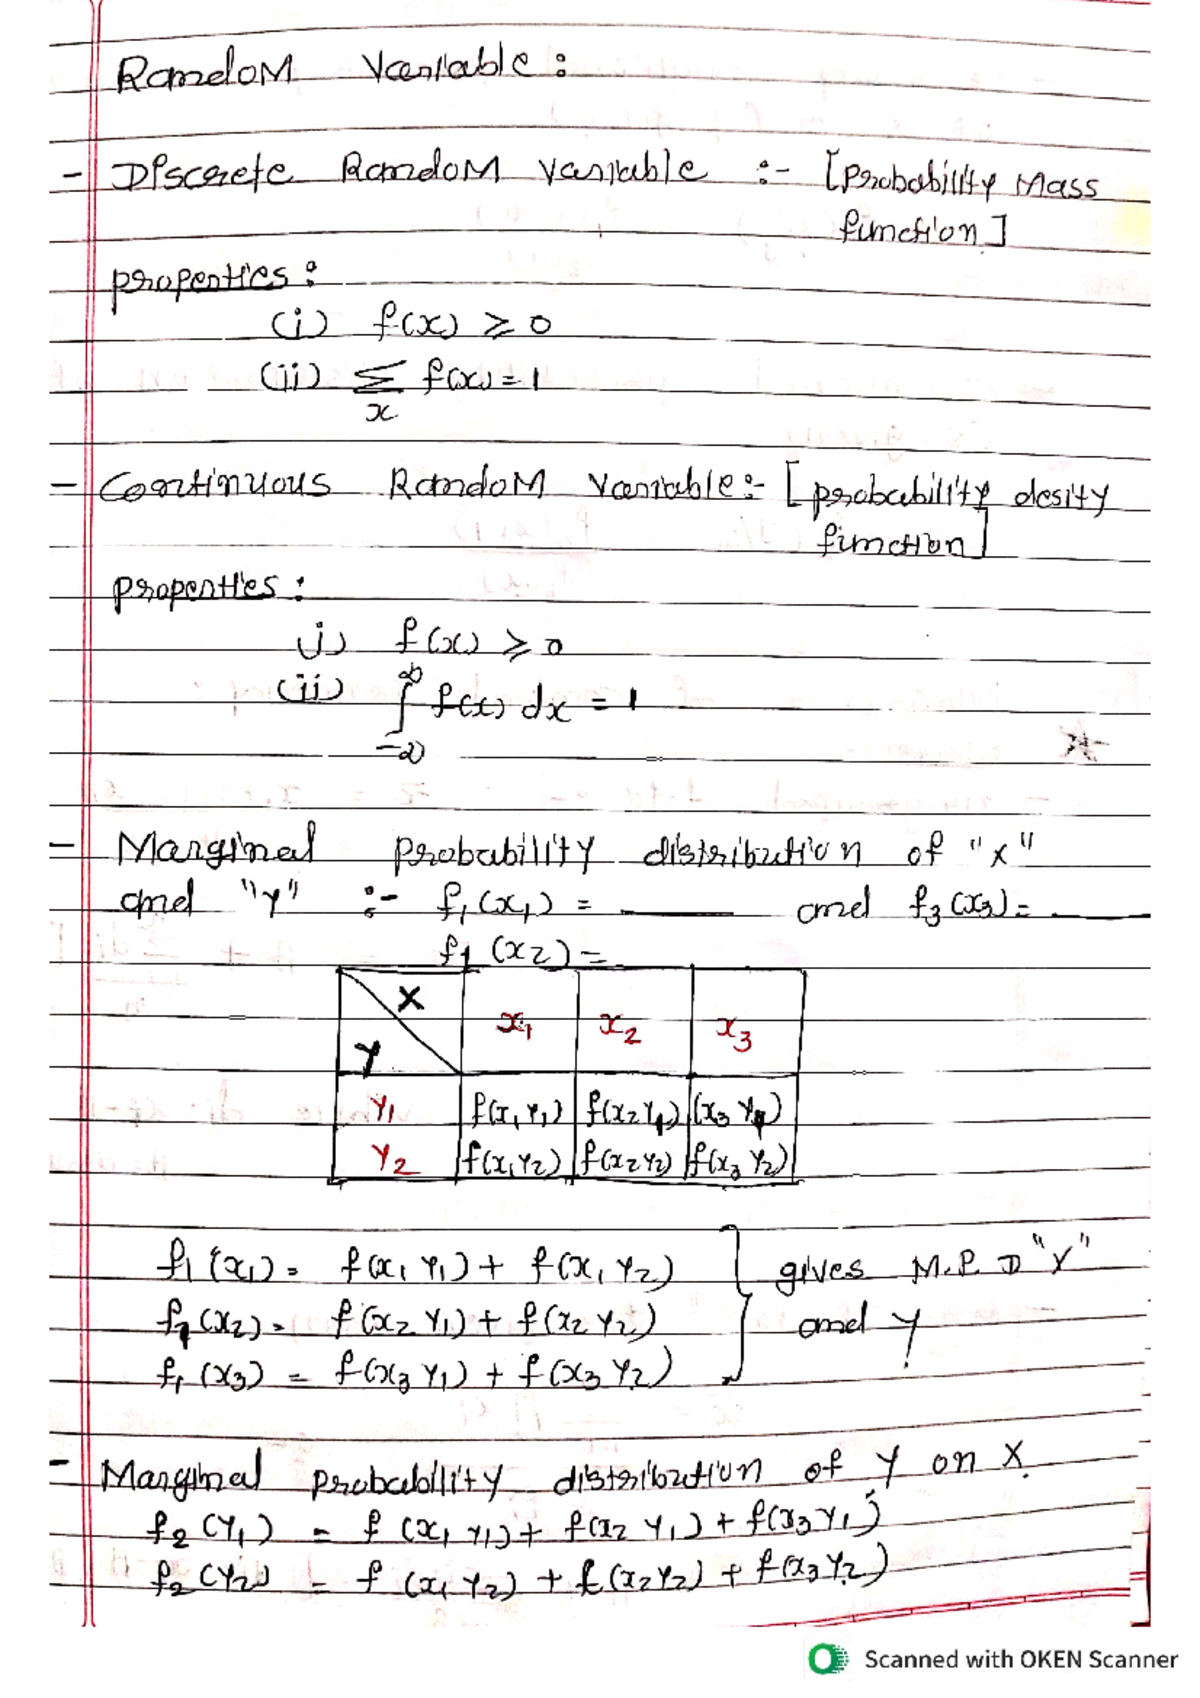 Random Variable :
- Discrete Random variable :- [probability Mass
function]
properties :
(i) f(x) ≥ 0
(ii) Σ f(x) = 1
x
- Continuous Random Variable :- [probability desity
function]
properties :
(i) f(x) ≥ 0
(ii) ∫ f(x) dx = 1
∞
-∞
- Marginal probability distribution of "x"
and "Y" :- f₁(x₁) = ____ and f₃(x₃) = ____
f₁(x₂) =
X x₁ x₂ x₃
Y
Y₁ f(x₁ Y₁) f(x₂ Y₁) (x₃ Y₁)
Y₂ f(x₁ Y₂) f(x₂ Y₂) f(x₃ Y₂)
f₁(x₁) = f(x₁ Y₁) + f(x₁ Y₂) gives M.P.D "X"
f₁(x₂) = f(x₂ Y₁) + f(x₂ Y₂) and Y
f₁(x₃) = f(x₃ Y₁) + f(x₃ Y₂)
- Marginal probability distribution of Y on X.
f₂(Y₁) = f(x₁ y₁) + f(x₂ Y₁) + f(x₃ Y₁)
f₂(Y₂) = f(x₁ Y₂) + f(x₂ Y₂) + f(x₃ Y₂)
Scanned with OKEN Scanner